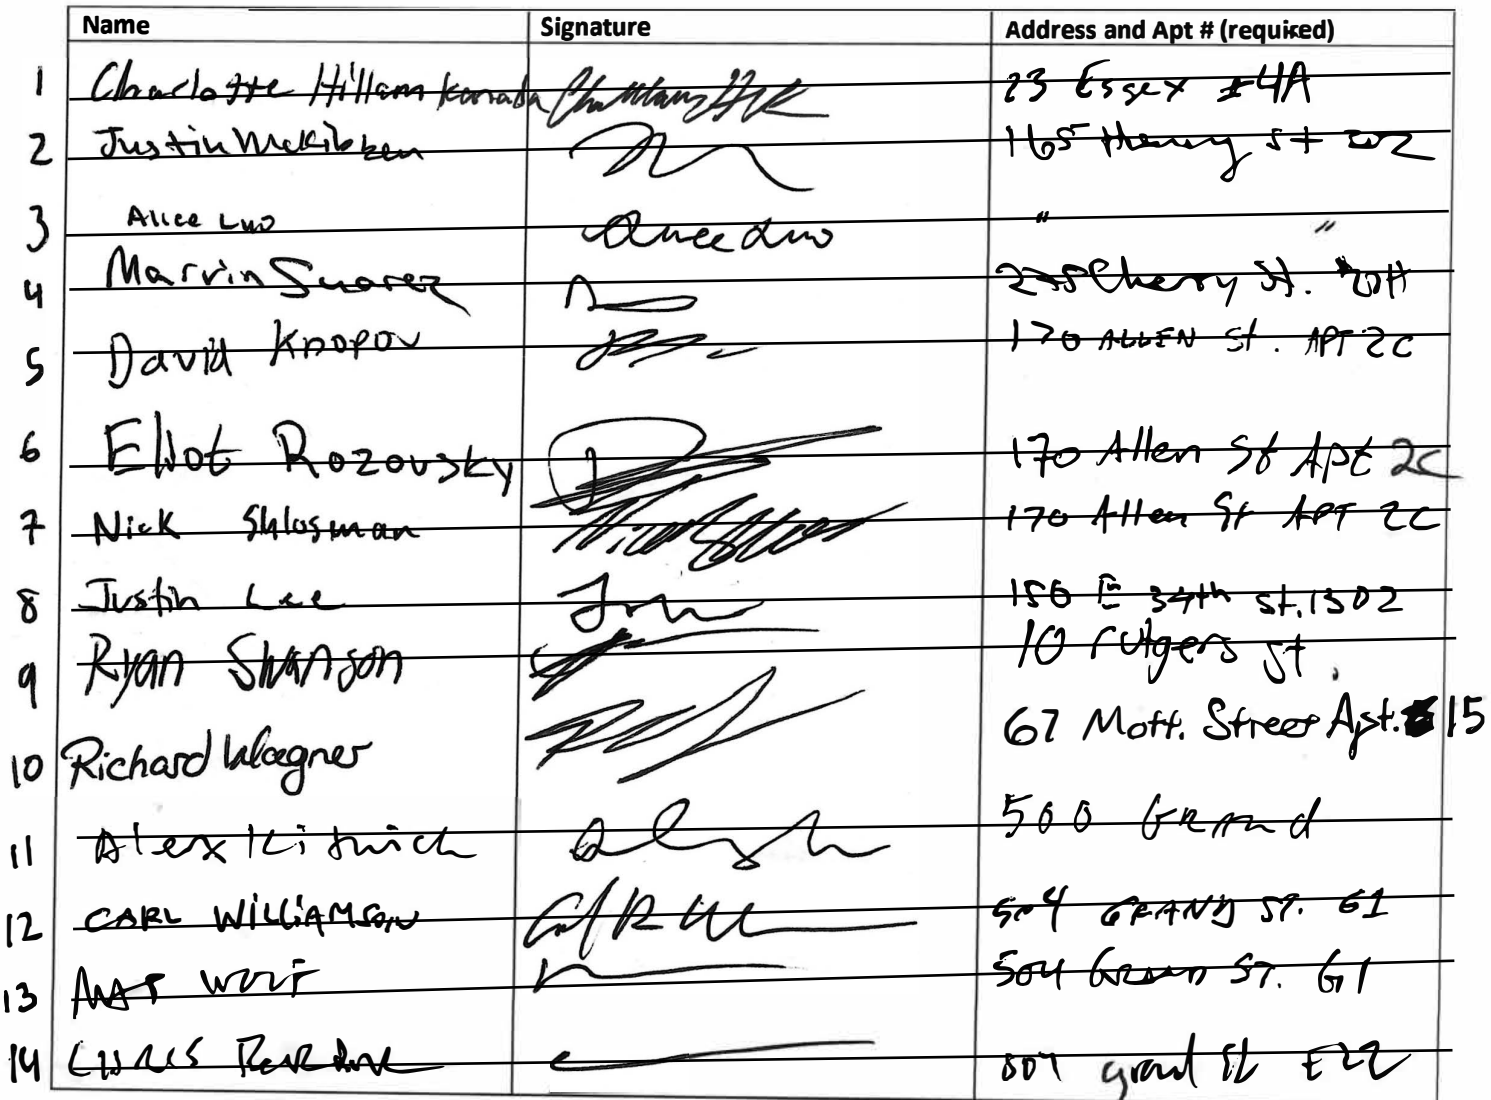 Name Signature Address and Apt # (required)
1 Charlotte Hillam Kanada 23 Essex #4A
2 Justin McKibben 165 Henry St
3 Alice Luo Alice Luo " "
4 Marvin Suarez Cherry St. 20H
5 David Knopov 170 ALLEN St. APT 2C
6 Eliot Rozovsky 170 Allen St Apt 2C
7 Nick Shlosman 170 Allen St APT 2C
8 Justin Lee 150 E 34th St. 1302
9 Ryan Swanson 10 rutgers st.
10 Richard Wagner 67 Mott. Street Apt. 15
11 Alex Kitnick 500 Grand
12 CARL WILLIAMSON 504 GRAND ST. G1
13 504 Grand ST. G1
14 grand St E22